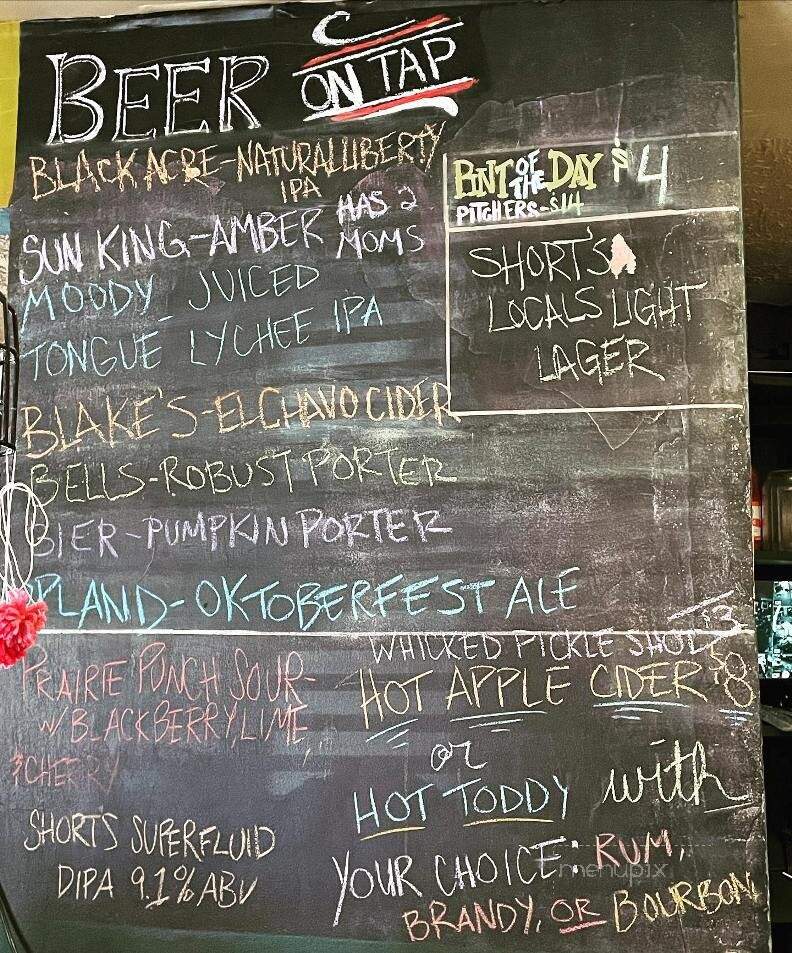 BEER ON TAP
BLACK ACRE-NATURAL LIBERTY
IPA
SUN KING-AMBER HAS 2
MOMS
MOODY JUICED
TONGUE LYCHEE IPA
BLAKE'S-EL CHAVO CIDER
BELLS-ROBUST PORTER
BIER-PUMPKIN PORTER
PLAND-OKTOBERFEST ALE
PINT OF THE DAY $4
PITCHERS-$14
SHORT'S
LOCALS LIGHT
LAGER
PRAIRIE PUNCH SOUR-
W/ BLACKBERRY, LIME,
& CHERRY
SHORTS SUPERFLUID
DIPA 9.1% ABV
WHICKED PICKLE SHOTS 3
HOT APPLE CIDER $8
or
HOT TODDY with
YOUR CHOICE: RUM,
BRANDY, OR BOURBON
menupix